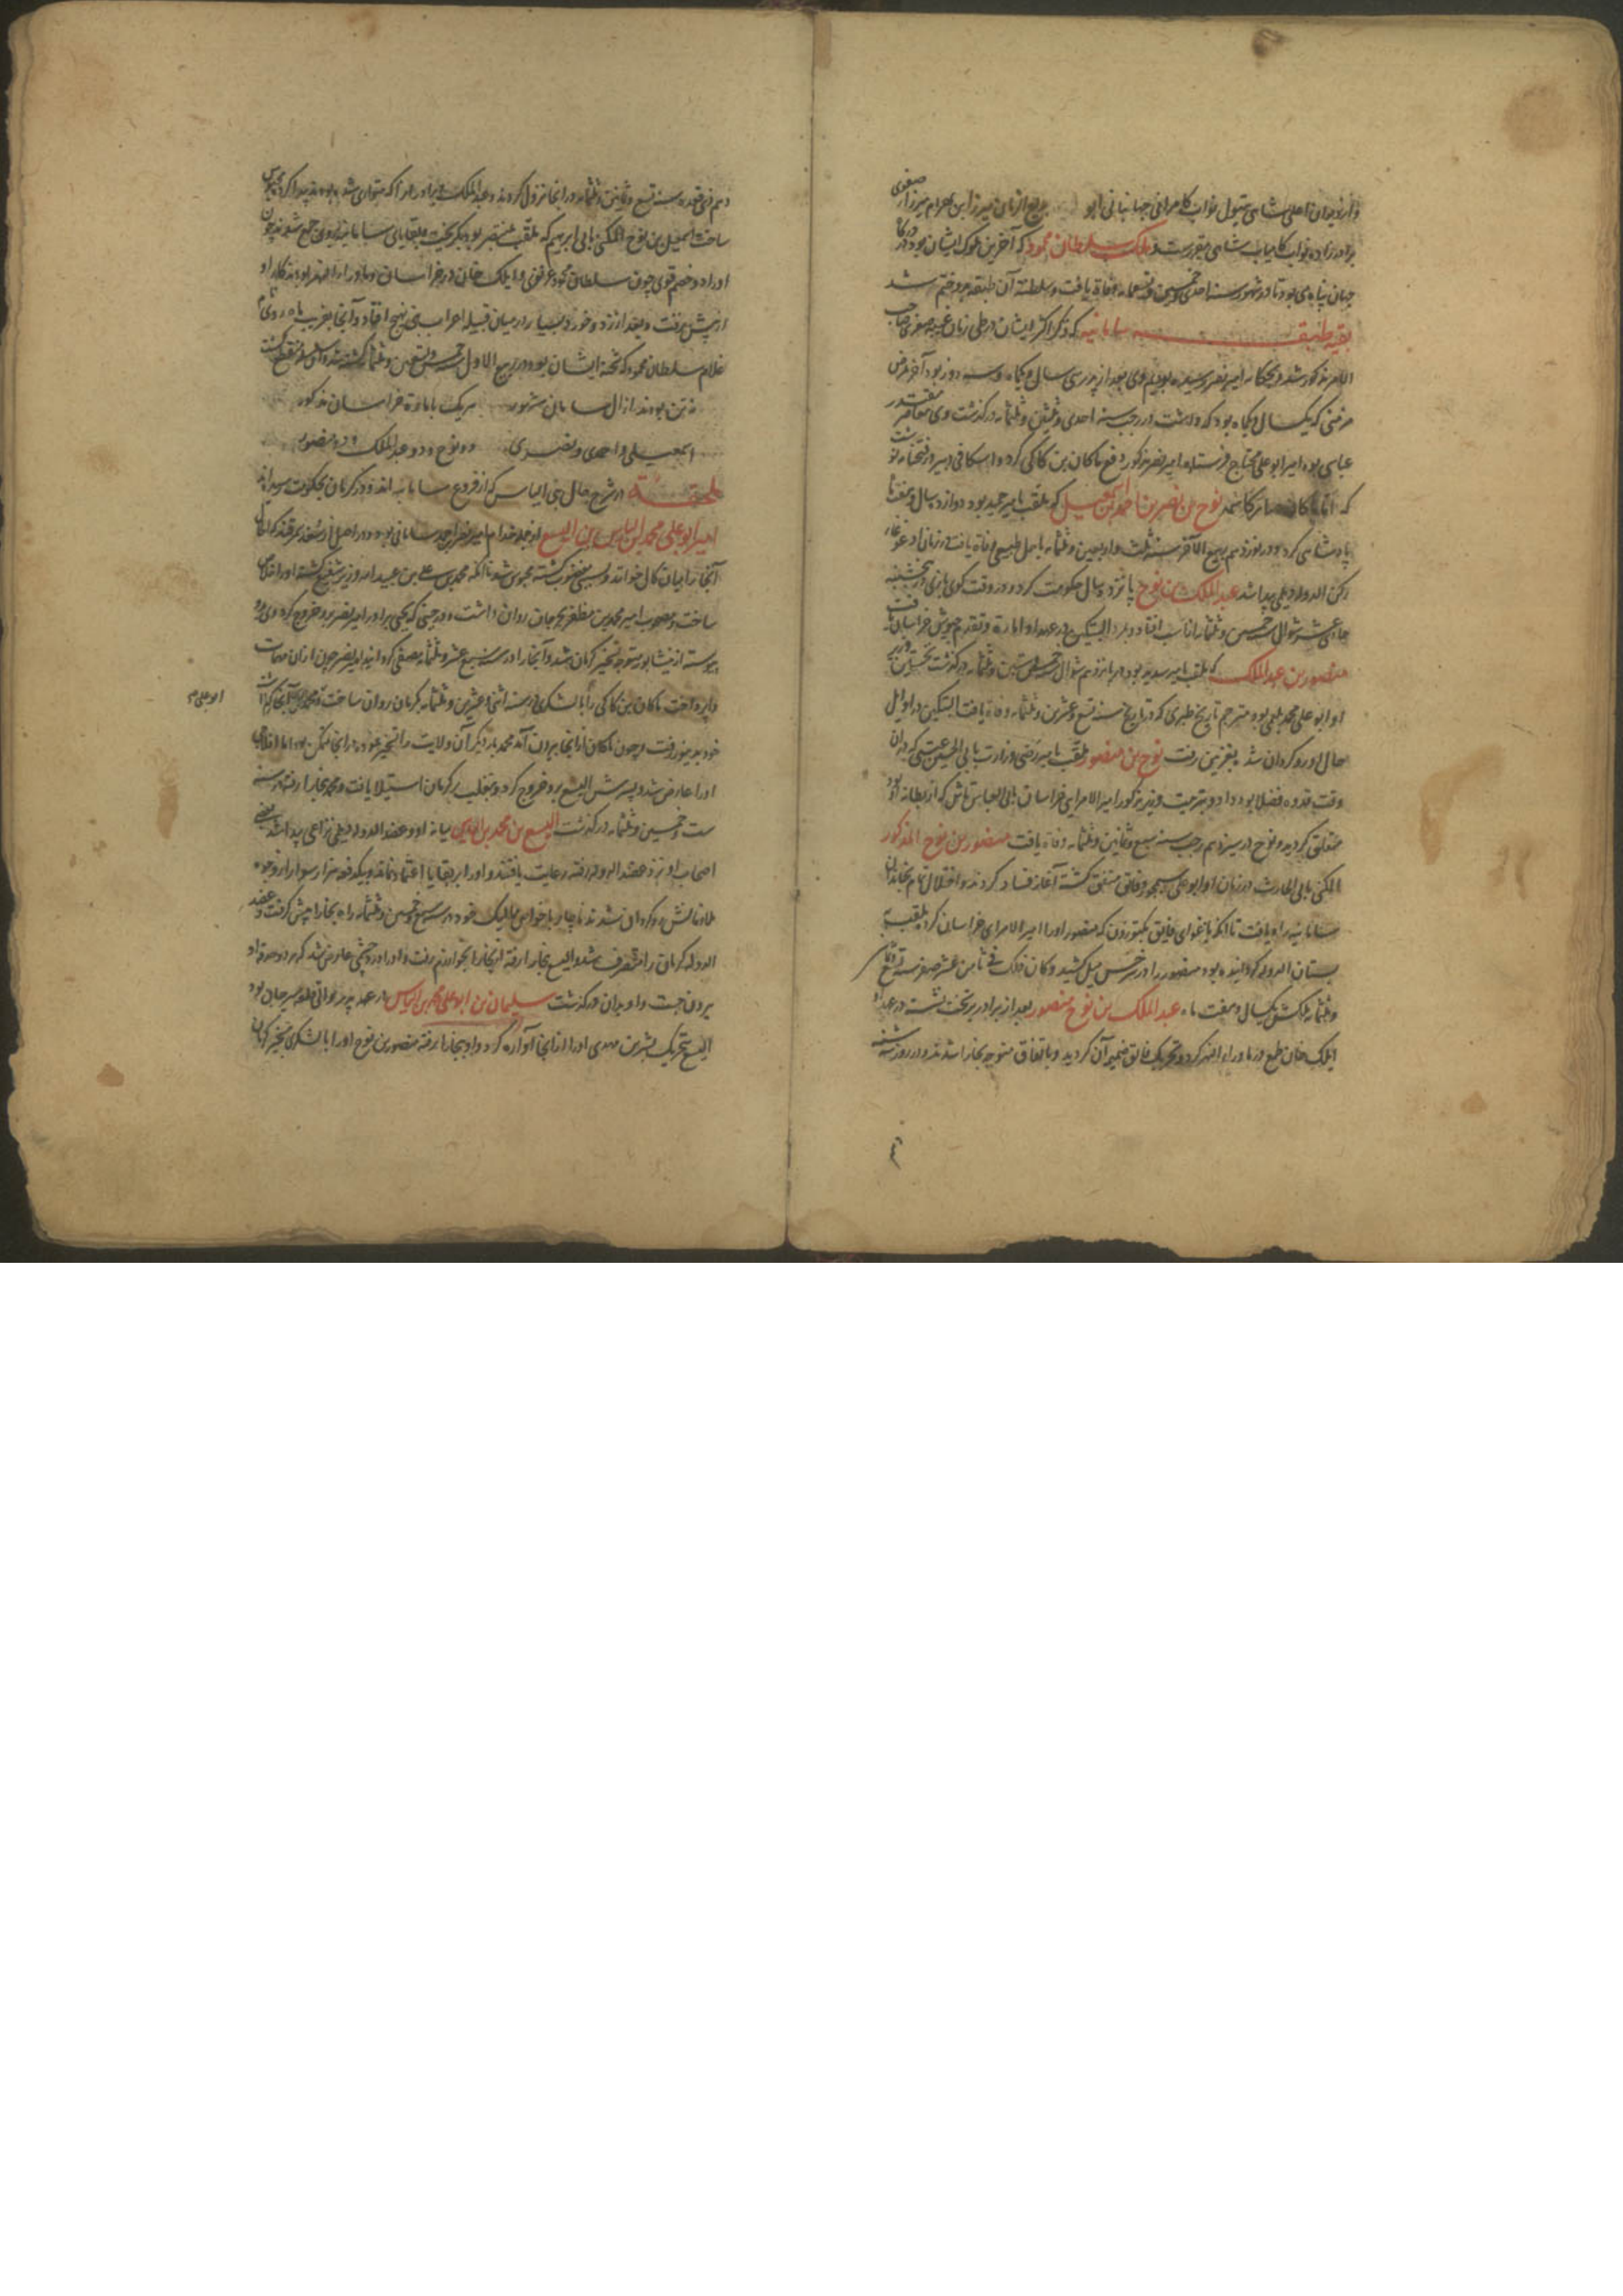 برادرزاده نواب کامیاب شاهی مقررست ملک سلطان محمود که آخرین ملوک ایشان بود در
جهان پناهی بود تا در شهور سنه احدی و خمسین و تسعمایه وفاة یافت و سلطنة آن طبقه برو ختم شد
بقیه طبقه سامانیه که ذکر اکثر ایشان در طی زمان غیبه صغری صاحب
الامر مذکور شد و بحکایه امیر نصر رسیده بودیم وی بعد از پدر سی سال و یکماه و سه روز بود آخر بمرض
مزمنی که یکسال و یکماه بود که داشت در رجب سنه احدی و ثلثین و ثلثمایه درگذشت وی معاصر مقتدر
عباسی بود امیر ابو علی محتاج فرستاده امیر نصر مذکور دفع ماکان بن کاکی کرد و اسکافی دبیر در فتحنامه نوشت
که اما ماکان صار کاسمه نوح بن نصر بن احمد بن اسمعیل که ملقب بامیر حمید بود دوازده سال و هفت ماه
پادشاهی کرد و در نوزدهم ربیع الاخر سنه ثلث و اربعین و ثلثمایه باجل طبیعی وفاة یافت در زمان او غوغای
رکن الدوله دیلمی پیدا شد عبدالملک بن نوح پانزده سال حکومت کرد و در وقت کوی بازی در پنجشنبه
حادی عشر شوال سنه خمسین و ثلثمایه از اسب افتاد و مرد البتکین در عهد او امارة و تقدم جیوش خراسان یافت
منصور بن عبدالملک که ملقب بامیر سدید بود در یازدهم شوال خمس و ستین و ثلثمایه درگذشت نخستین وزیر
او ابو علی محمد بلعمی بود مترجم تاریخ طبری که در تاریخ سنه تسع و عشرین و ثلثمایه وفاة یافت البتکین در اوایل
حال او رو گردان شد بغزنین رفت نوح بن منصور ملقب بامیر رضی وزارت بابی الحسین عتبی که در آن
وقت قدوه فضلا بود داد و بتربیت وزیر مذکور امیر الامرایی خراسان بابی العباس تاش که از بطانه او بود
متعلق گردید و نوح در سیزدهم رجب سنه سبع و ثمانین و ثلثمایه وفاة یافت منصور بن نوح المذکور
المکنی بابی الحارث در زمان او ابو علی سیمجور و فایق متفق گشته آغاز فساد کردند و اختلال تمام بخاندان
سامانیه راه یافت تا آنکه باغوای فایق بکتوزون که منصور او را امیر الامرای خراسان کرد بلقب
سنان الدوله گردانیده بود منصور را در سرخس میل کشید و کان ذلک فی ثامن عشر صفر سنه تسع و ثمانین
و ثلثمایه ملکش یکسال و هفت ماه عبدالملک بن نوح منصور بعد از برادر بر تخت نشست در عهد او
ایلک خان طمع در ماوراء النهر کرد و تحریک فایق ضمیمه آن گردید و باتفاق متوجه بخارا شدند و در روز سه شنبه
دهم ذی قعده سنه تسع و ثمانین و ثلثمایه در آنجا نزول کردند و عبدالملک و برادر او را که متواری شده بودند پیدا کرده محبوس
ساخت اسمعیل بن نوح المکنی بابی ابرهیم که ملقب بمنتصر بود بگریخت و بقایای سامانیه بر وی جمع شدند چون
او را دو خصم قوی چون سلطان محمود غزنوی و ایلک خان در خراسان و ماوراء النهر بودند کار او
از پیش نرفت و بعد از زد و خورد بسیار در میان قبیله اعراب بنی بهیج افتاد و آنجا بضرب ماه روی
غلام سلطان محمود که شحنه ایشان بود در ربیع الاول خمس و تسعین و ثلثمایه کشته شد و آن سلسله منقطع گشت
نه تن بودند از آل سامان مشهور هر یک بامارة خراسان مذکور
اسمعیلی و احمدی و نصری دو نوح و دو عبدالملک و دو منصور
ملحقة در شرح حال بنی الیاس که از فروع سامانیه اند و در کرمان بحکومت رسیده اند
امیر ابو علی محمد بن الیاس بن الیسع او جمله خدام امیر نصر احمد سامانی بود
ساخت و مصحوب امیر محمد بن مظفر بجرجان روان داشت و در حینی که یحیی برادر امیر نصر برو خروج کرد وی
پیوسته از نیشابور متوجه تسخیر کرمان شد و آنجا را در سنه سبع عشر و ثلثمایه
واپرداخت ماکان بن کاکی را با لشکری در سنه اثنی و عشرین و ثلثمایه بکرمان روان ساخت و محمد
ابو علی م
خود بدینور رفت و چون ماکان از آنجا بیرون آمد محمد بار دیگر آن ولایت را تسخیر نمود
او را عارض شد و پسرش الیسع برو خروج کرد و بتغلب بر کرمان استیلا یافت و محمد بخارا رفته در سنه
ست و خمسین و ثلثمایه درگذشت الیسع بن محمد بن الیاس میانه او و عضد الدوله دیلمی نزاعی پیدا شد
اصحاب او نزد عضد الدوله رفته رعایت یافتند و او را بر بقایا اعتماد نماند و بیکدفعه هزار سوار از وجوه
ملازمانش رو گردان شدند ناچار با خواص و ممالیک خود در سنه سبع و خمسین و ثلثمایه راه بخارا پیش گرفت و عضد
الدوله کرمان را متصرف شد و الیسع بخارا رفته از بخارا بخوارزم رفت و او را درد چشمی عارض شد که هر دو حدقه او
بیرون جست و او بدان درگذشت سلیمان بن ابو علی محمد بن الیاس در عهد پدر والی قلعه سیرجان بود
الیسع بتحریک بشر بن مهدی او را از آنجا آواره کرد و او بخارا رفته منصور بن نوح او را با لشکری بتسخیر کرمان